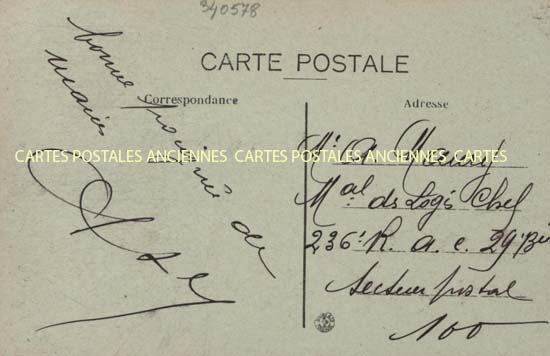 340578
CARTE POSTALE
Correspondance
Adresse
bonne poignée de
mains
CARTES POSTALES ANCIENNES CARTES POSTALES ANCIENNES CARTES POSTALES
Mr A
Mal ds Logis Chef
236e R. a. c. 29e Bie
Secteur postal
100